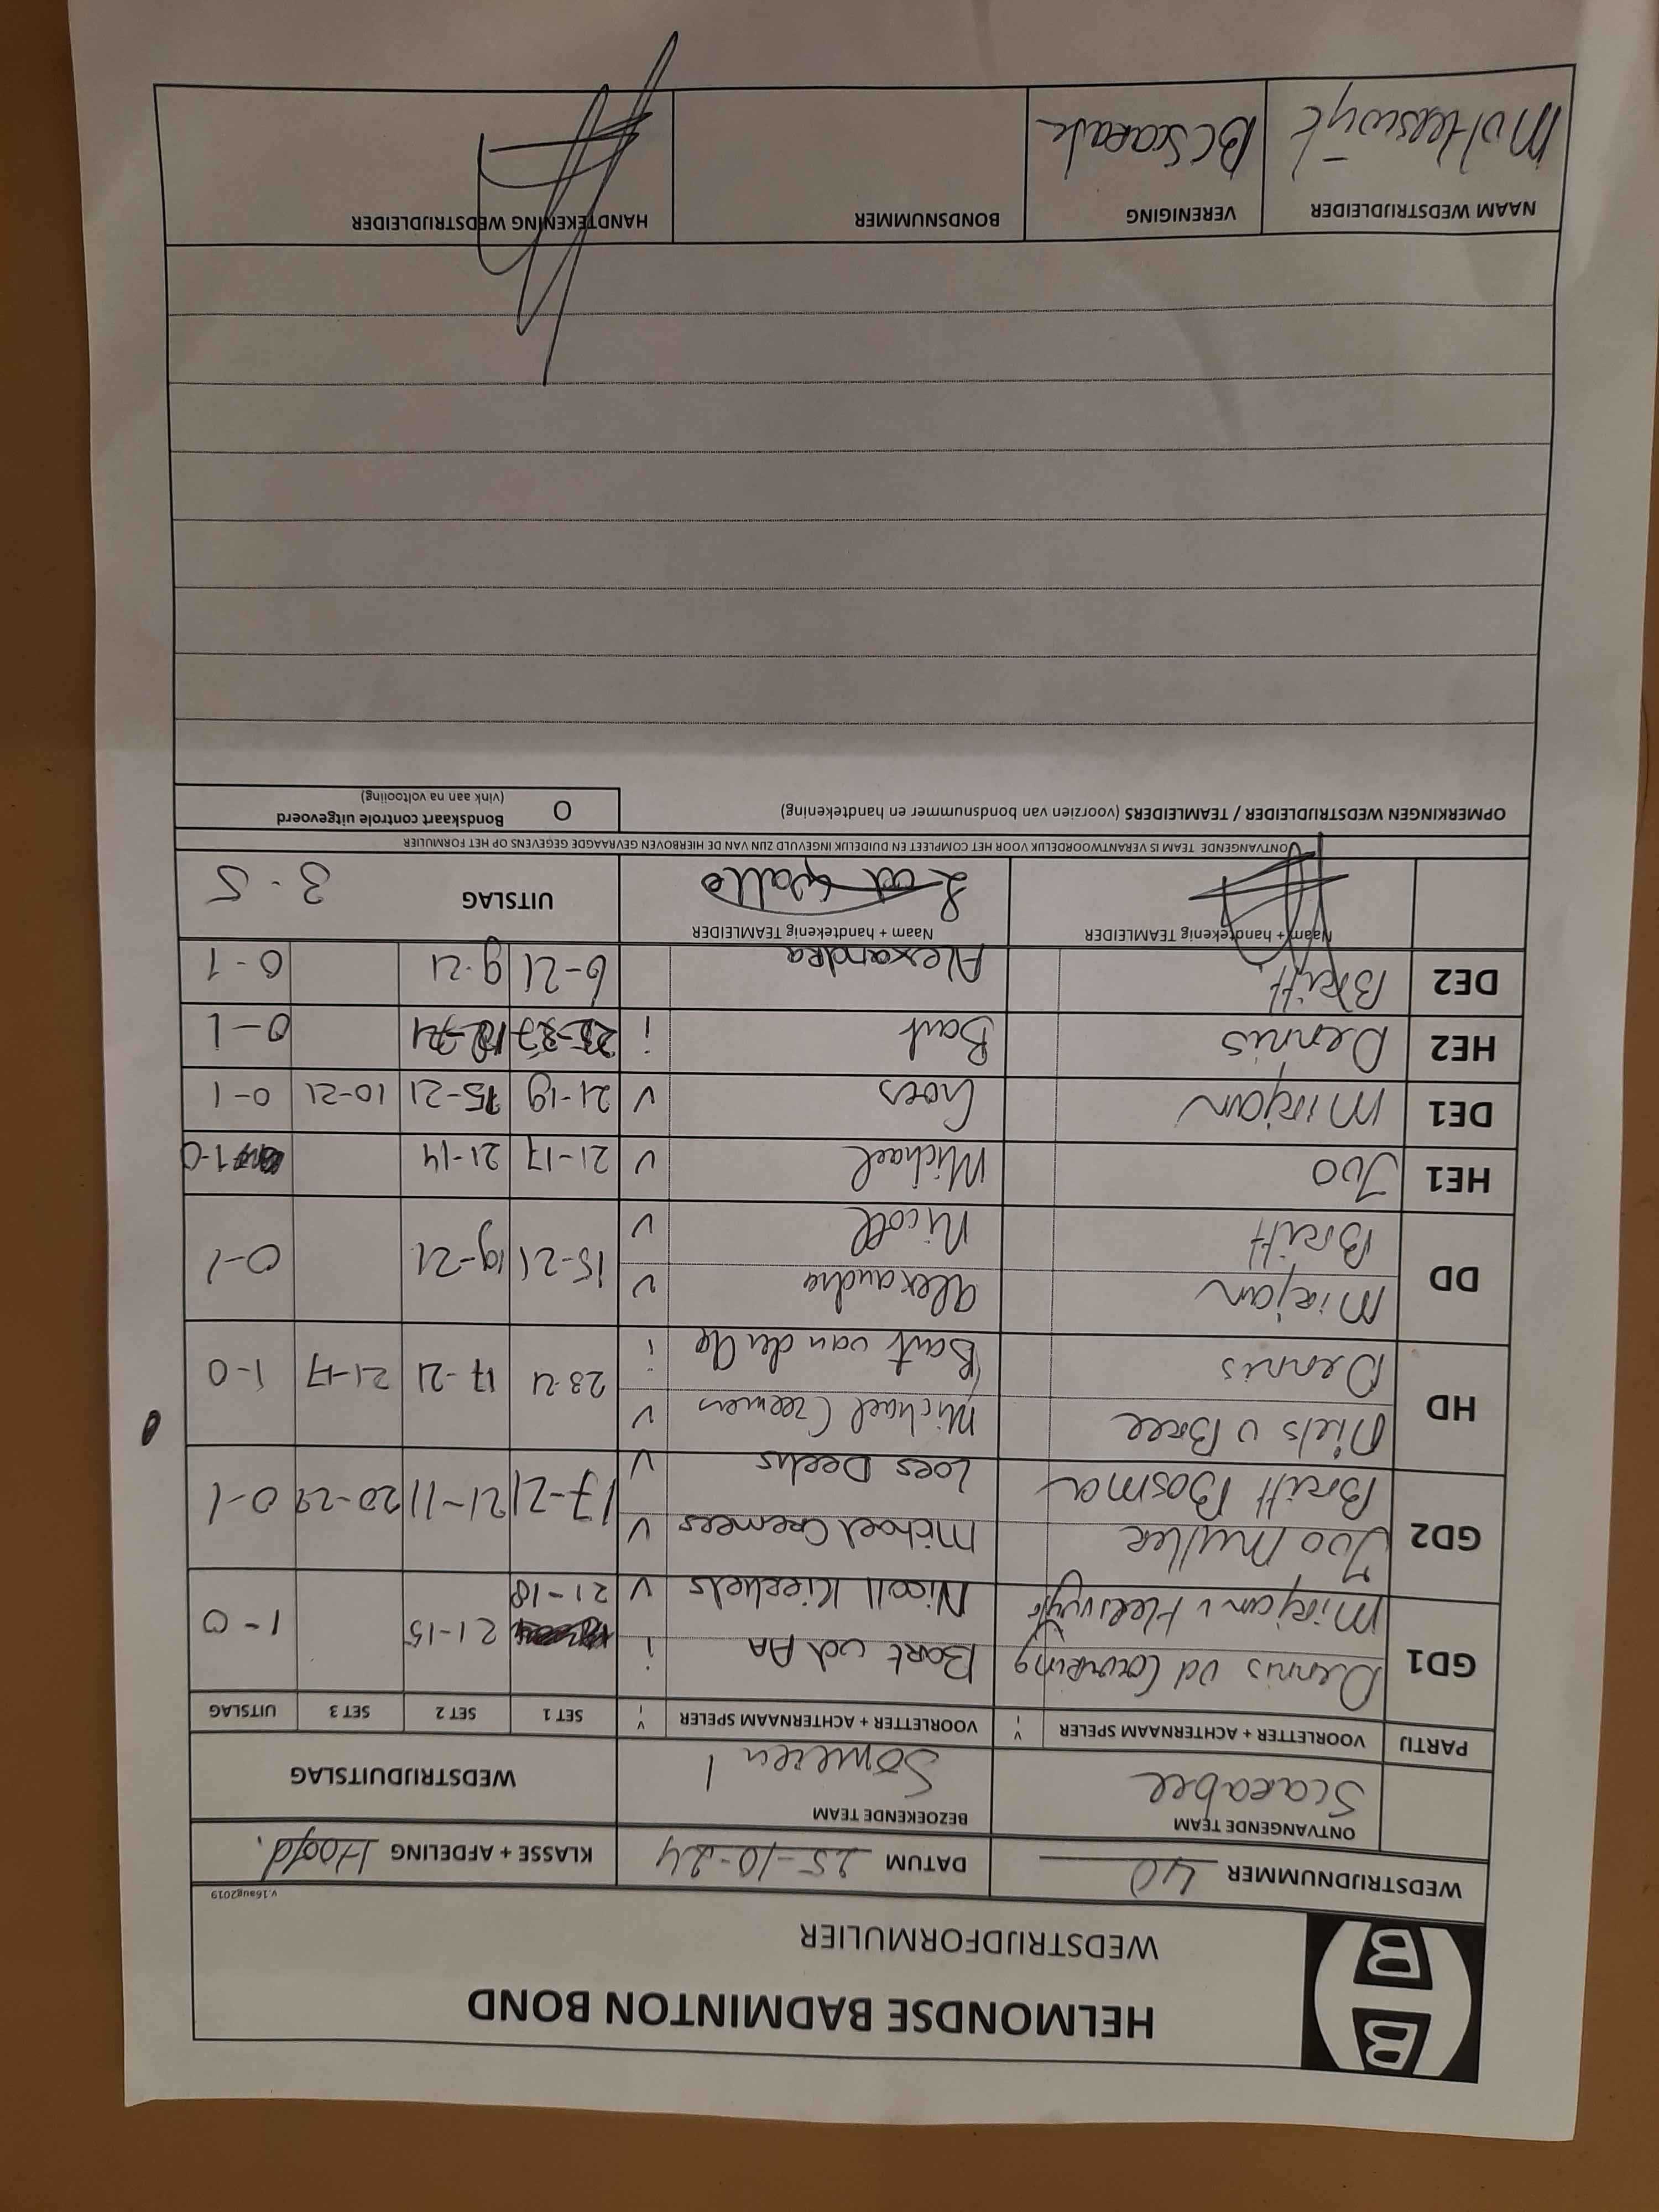 HELMONDSE BADMINTON BOND
WEDSTRIJDFORMULIER
v.16aug2019
WEDSTRIJDNUMMER 40 DATUM 25-10-24 KLASSE + AFDELING Hoofd.
ONTVANGENDE TEAM BEZOEKENDE TEAM WEDSTRIJDUITSLAG
Scarabee Someren 1
PARTIJ VOORLETTER + ACHTERNAAM SPELER V I VOORLETTER + ACHTERNAAM SPELER V I SET 1 SET 2 SET 3 UITSLAG
GD1 Dennis vd Bart vd AA i 21-15 1-0
Mirjam v Heeswijk Nicoll v 21-18
GD2 Ivo Muller Michael Cremers v 17-21 21-11 20-22 0-1
Britt Bosma Loes Deelis v
HD Niels v Bree Michael Creemers v 23-21 17-21 21-17 1-0
Dennis Bart van der Aa i
DD Mirjam Alexandra v 15-21 19-21 0-1
Britt Nicoll v
HE1 Ivo Michael v 21-17 21-14 1-0
DE1 Mirjam Loes v 21-19 15-21 10-21 0-1
HE2 Dennis Bart i 0-1
DE2 Britt Alexandra 6-21 9-21 0-1
Naam + handtekenig TEAMLEIDER Naam + handtekenig TEAMLEIDER UITSLAG 3-5
ONTVANGENDE TEAM IS VERANTWOORDELIJK VOOR HET COMPLEET EN DUIDELIJK INGEVULD ZIJN VAN DE HIERBOVEN GEVRAAGDE GEGEVENS OP HET FORMULIER
OPMERKINGEN WEDSTRIJDLEIDER / TEAMLEIDERS (voorzien van bondsnummer en handtekening) O Bondskaart controle uitgevoerd
(vink aan na voltooiing)
NAAM WEDSTRIJDLEIDER VERENIGING BONDSNUMMER HANDTEKENING WEDSTRIJDLEIDER
M v Heeswijk BC Scarabee